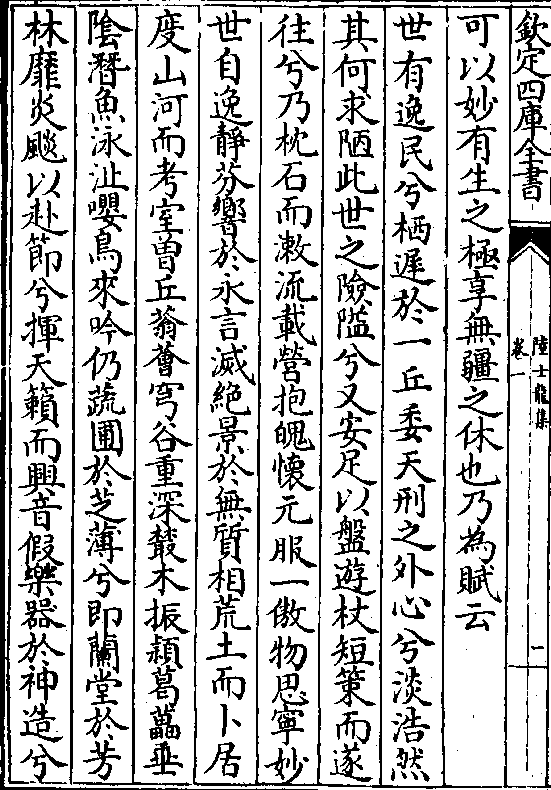 欽定四庫全書
陸士龍集
卷一
一
可以妙有生之極享無疆之休也乃為賦云
世有逸民兮栖遲於一丘委天刑之外心兮淡浩然
其何求陋此世之險隘兮又安足以盤遊杖短策而遂
往兮乃枕石而漱流載營抱魄懐元服一傲物思寧妙
世自逸靜芬響於永言滅絶景於無質相荒土而卜居
度山河而考室曽丘蓊薈穹谷重深䕺木振穎葛藟垂
陰潛魚泳沚嚶鳥來吟仍蔬圃於芝薄兮即蘭堂於芳
林靡炎飈以赴節兮揮天籟而興音假樂器於神造兮